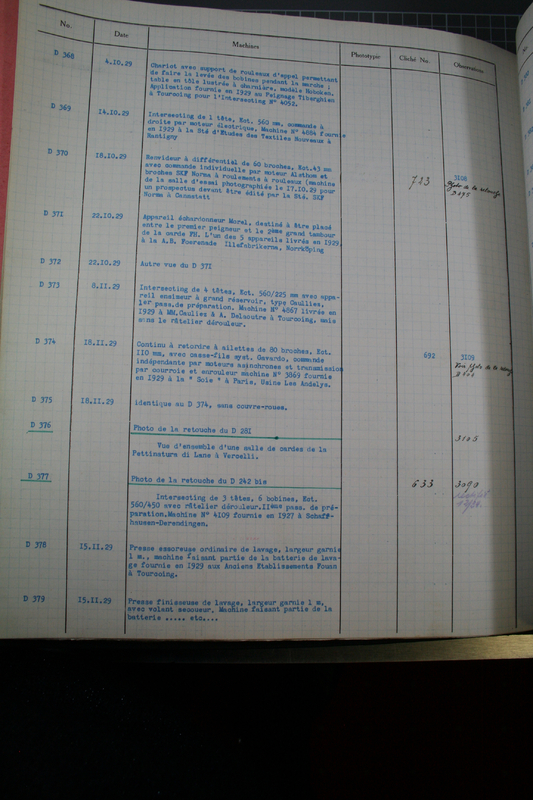 No. Date Machines Phototypie Cliché No. Observations
D 368 4.IO.29 Chariot avec support de rouleaux d'appel permettant
de faire la levée des bobines pendant la marche ;
table en tôle lustrée à charnière, modèle
Application fournie en 1929 au Peignage Tiberghien
à Tourcoing pour l'Intersecting N° 4092.
D 369 I4.IO.29 Intersecting de 1 tête, Ect. 560 mm, commande à
droite par moteur électrique, Machine N° 4884 fournie
en 1929 à la Sté d'Etudes des Textiles Nouveaux à
Bantigny
D 370 I8.IO.29 Renvideur à différentiel de 60 broches, Ect.43 mm
avec commande individuelle par moteur Alsthom et
broches SKF Norma à roulements à rouleaux (machine
de la salle d'essai photographiée le I7.IO.29 pour
un prospectus devant être édité par la Sté. SKF
Norma à Cannstatt 723 3I08
de la retouche
D 37I 22.IO.29 Appareil échardonneur Morel, destiné à être placé
entre le premier peigneur et le 2ème grand tambour
de la carde FH. L'un des 5 appareils livrés en I929
à la A.B. Foerenade Illefabrikerna, Norrköping
D 372 22.IO.29 Autre vue du D 37I
D 373 8.II.29 Intersecting de 4 têtes, Ect. 560/225 mm avec appa-
reil ensimeur à grand réservoir, type Caulliez.
1er pass.de préparation. Machine N° 4867 livrée en
I929 à MM.Caulliez & A. Delaoutre à Tourcoing, mais
sans le râtelier dérouleur.
D 374 I8.II.29 Continu à retordre à ailettes de 80 broches, Ect.
IIO mm, avec casse-fils syst. Gavardo, commande
indépendante par moteurs asinchrones et transmission
par courroie et enrouleur machine N° 3869 fournie
en I929 à la " Soie " à Paris, Usine Les Andelys. 692 3I09
Voir de la
D 375 I8.II.29 identique au D 374, sans couvre-roues.
D 376 Photo de la retouche du D 28I
Vue d'ensemble d'une salle de cardes de la
Pettinatura di Lane à Verzelli. 3105
D 377 Photo de la retouche du D 242 bis
Intersecting de 3 têtes, 6 bobines, Ect.
560/450 avec râtelier dérouleur.IIème pass. de pré-
paration.Machine N° 4IO9 fournie en I927 à Schaff-
hausen-Derendingen. 633 3090
D 378 I5.II.29 Presse essoreuse ordinaire de lavage, largeur garnie
1 m., machine faisant partie de la batterie de lava-
ge fournie en I929 aux Anciens Etablissements Fouan
à Tourcoing.
D 379 I5.II.29 Presse finisseuse de lavage, largeur garnie 1 m.
avec volant secoueur. Machine faisant partie de la
batterie ..... etc....